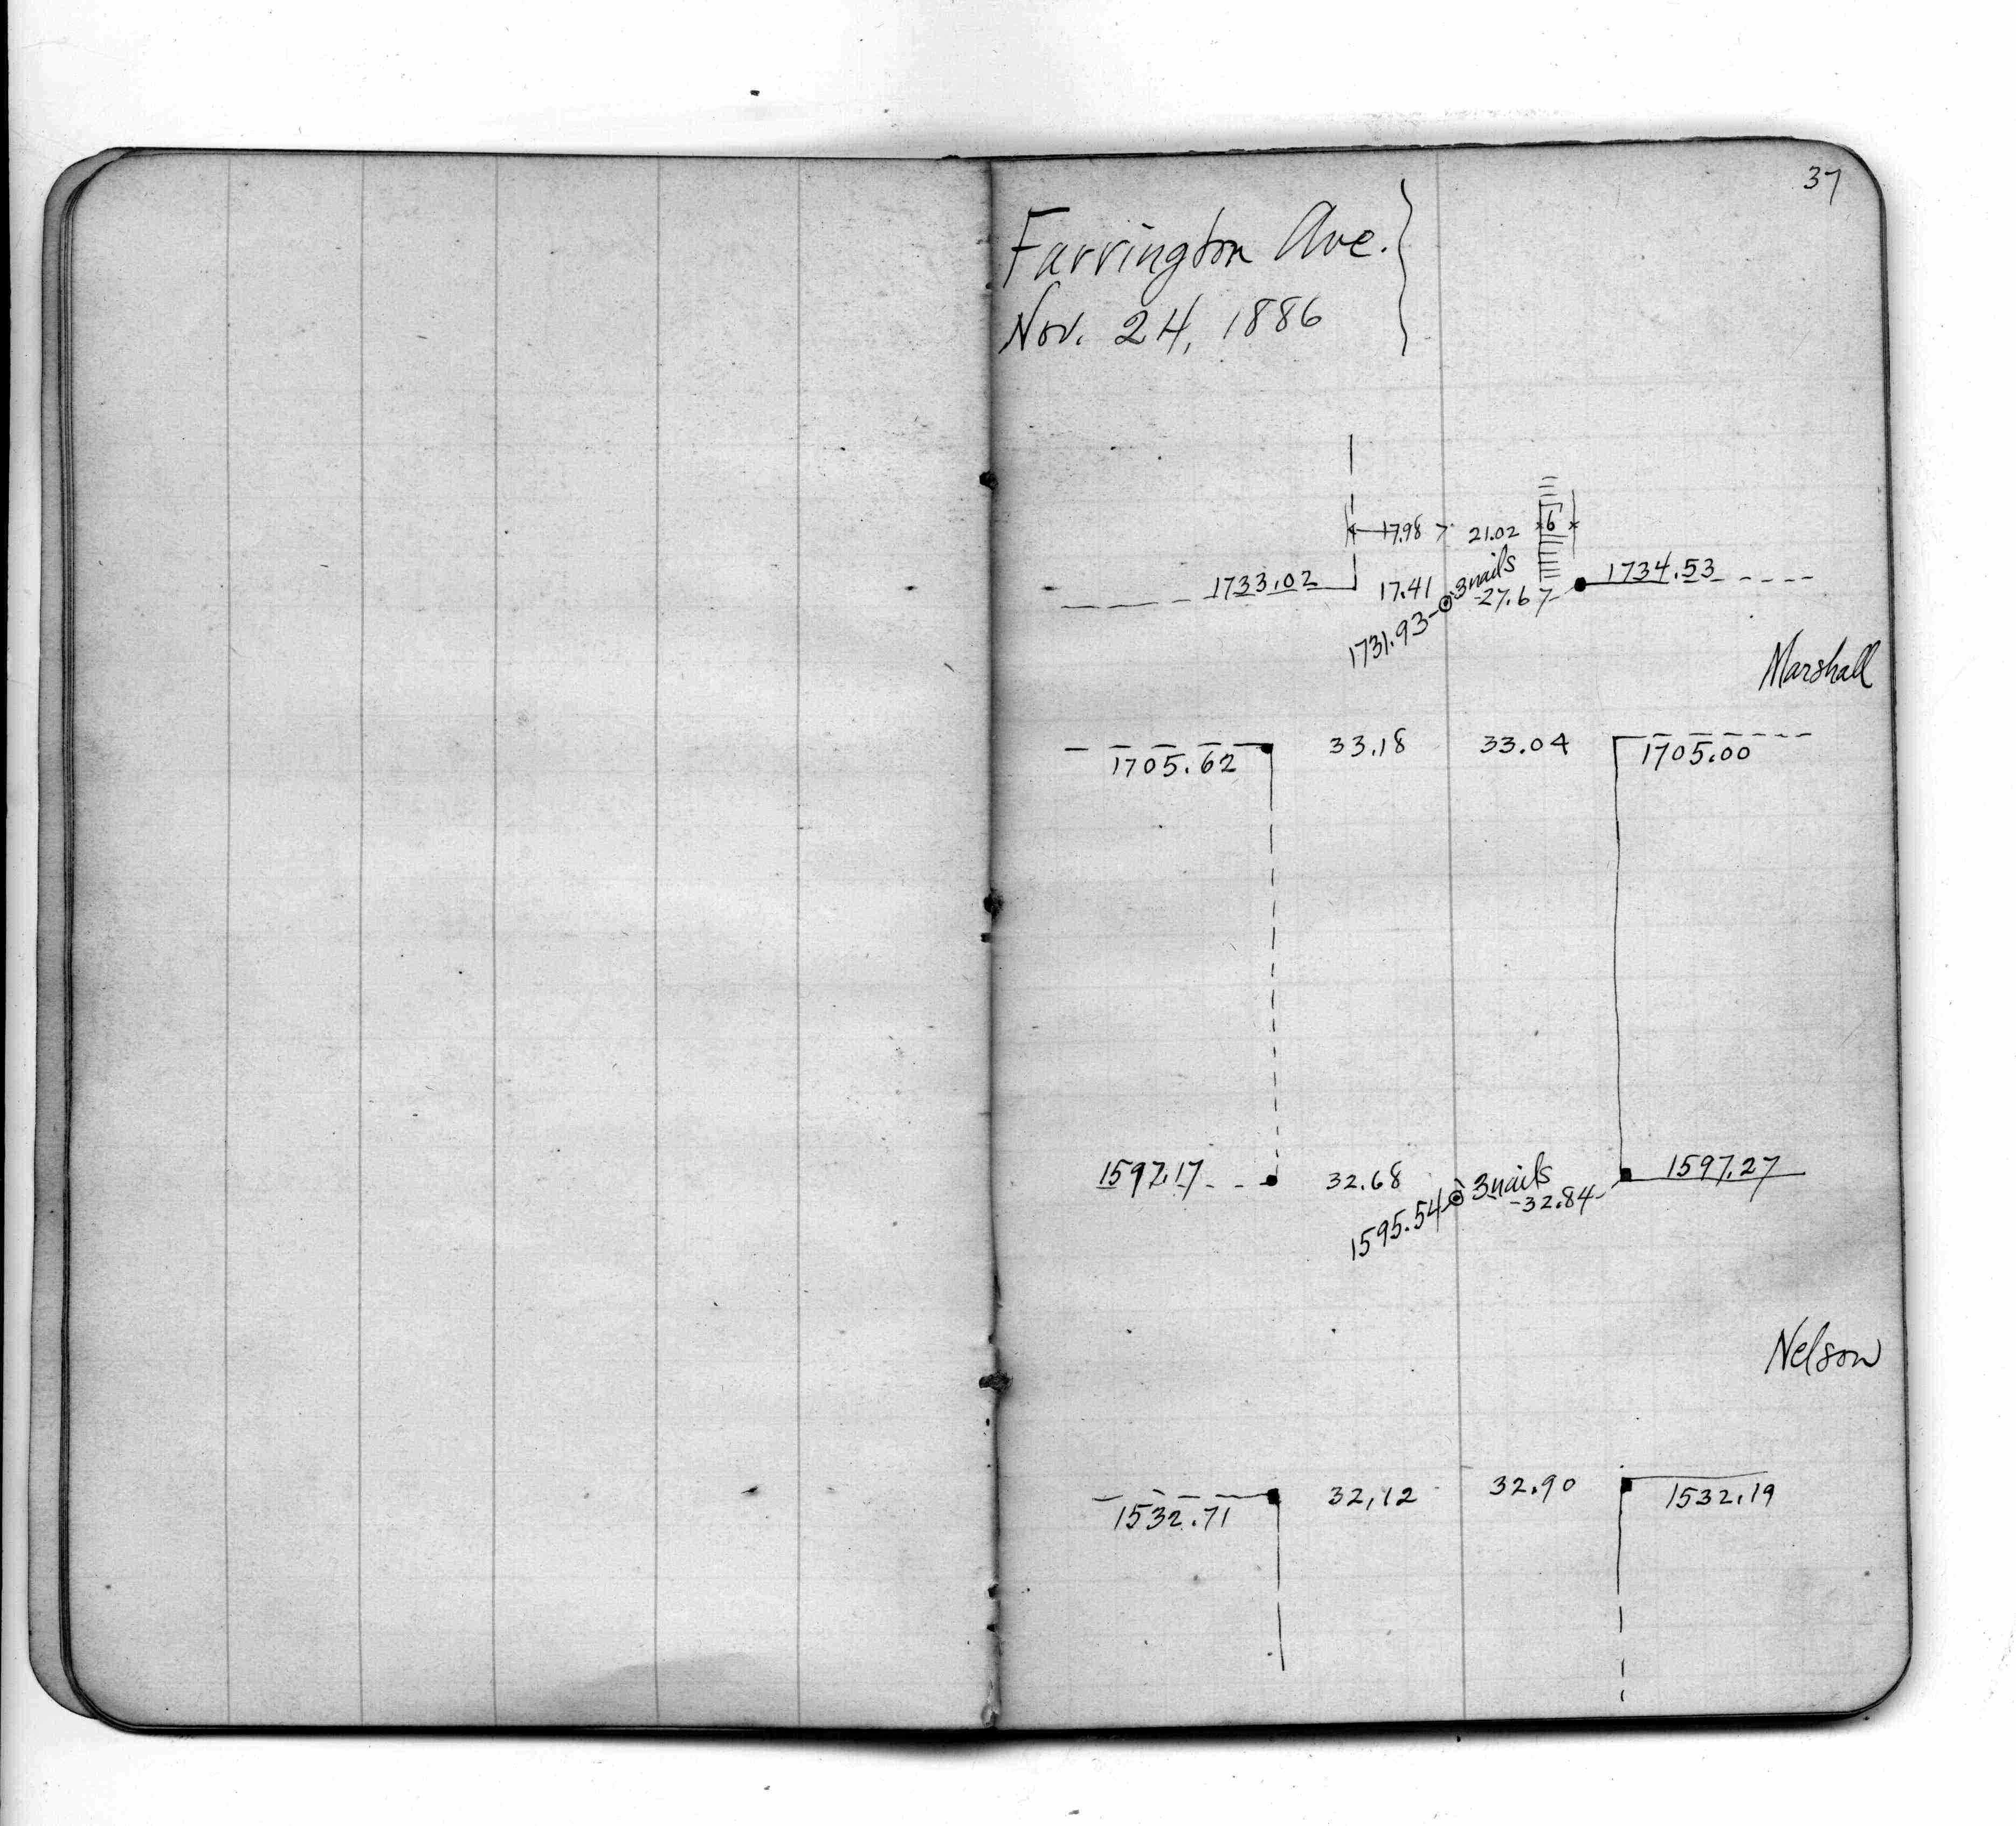 37
Farrington Ave.
Nov. 24, 1886
17.98 21.02 6
1733.02 17.41 3 nails 27.67 1734.53
1731.93
Marshall
1705.62 33.18 33.04 1705.00
1597.17 32.68 3 nails 32.84 1597.27
1595.54
Nelson
1532.71 32,12 32.90 1532.19